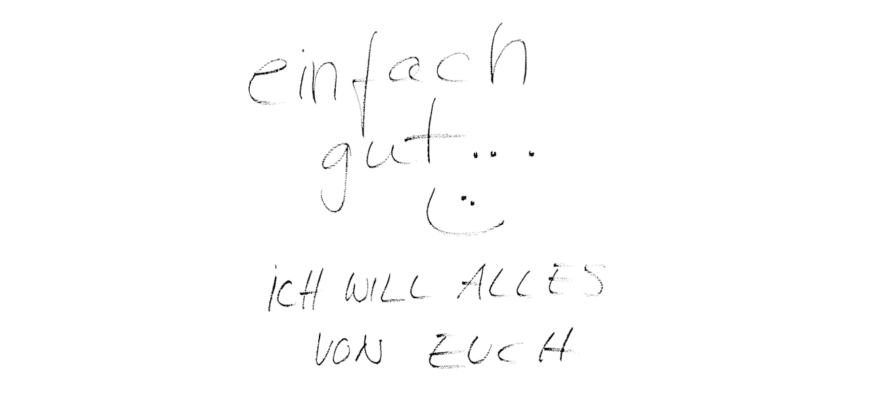 einfach
gut...
ICH WILL ALLES
VON EUCH